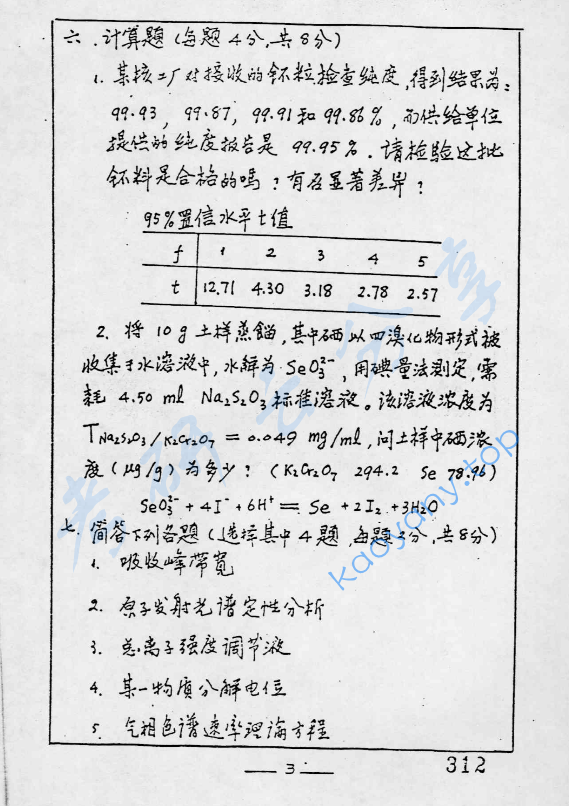 六.计算题(每题4分,共8分)
1. 某核工厂对接收的钚粒检查纯度,得到结果为:
99.93, 99.87, 99.91和99.86%,而供给单位
提供的纯度报告是 99.95%.请检验这批
钚料是合格的吗?有否显著差异?
95%置信水平t值
f 1 2 3 4 5
t 12.71 4.30 3.18 2.78 2.57
2. 将10g土样蒸馏,其中硒以四溴化物形式被
收集于水溶液中,水解为SeO₃²⁻,用碘量法测定,需
耗 4.50 ml Na₂S₂O₃标准溶液。该溶液浓度为
T Na₂S₂O₃/K₂Cr₂O₇ = 0.049 mg/ml,问土样中硒浓
度(μg/g)为多少?(K₂Cr₂O₇ 294.2 Se 78.96)
SeO₃²⁻ + 4I⁻ + 6H⁺ = Se + 2I₂ + 3H₂O
七.简答下列各题(选择其中4题,每题2分,共8分)
1. 吸收峰带宽
2. 原子发射光谱定性分析
3. 总离子强度调节液
4. 某一物质分解电位
5. 气相色谱速率理论方程
— 3 —
312
考研共享
kaoyany.top